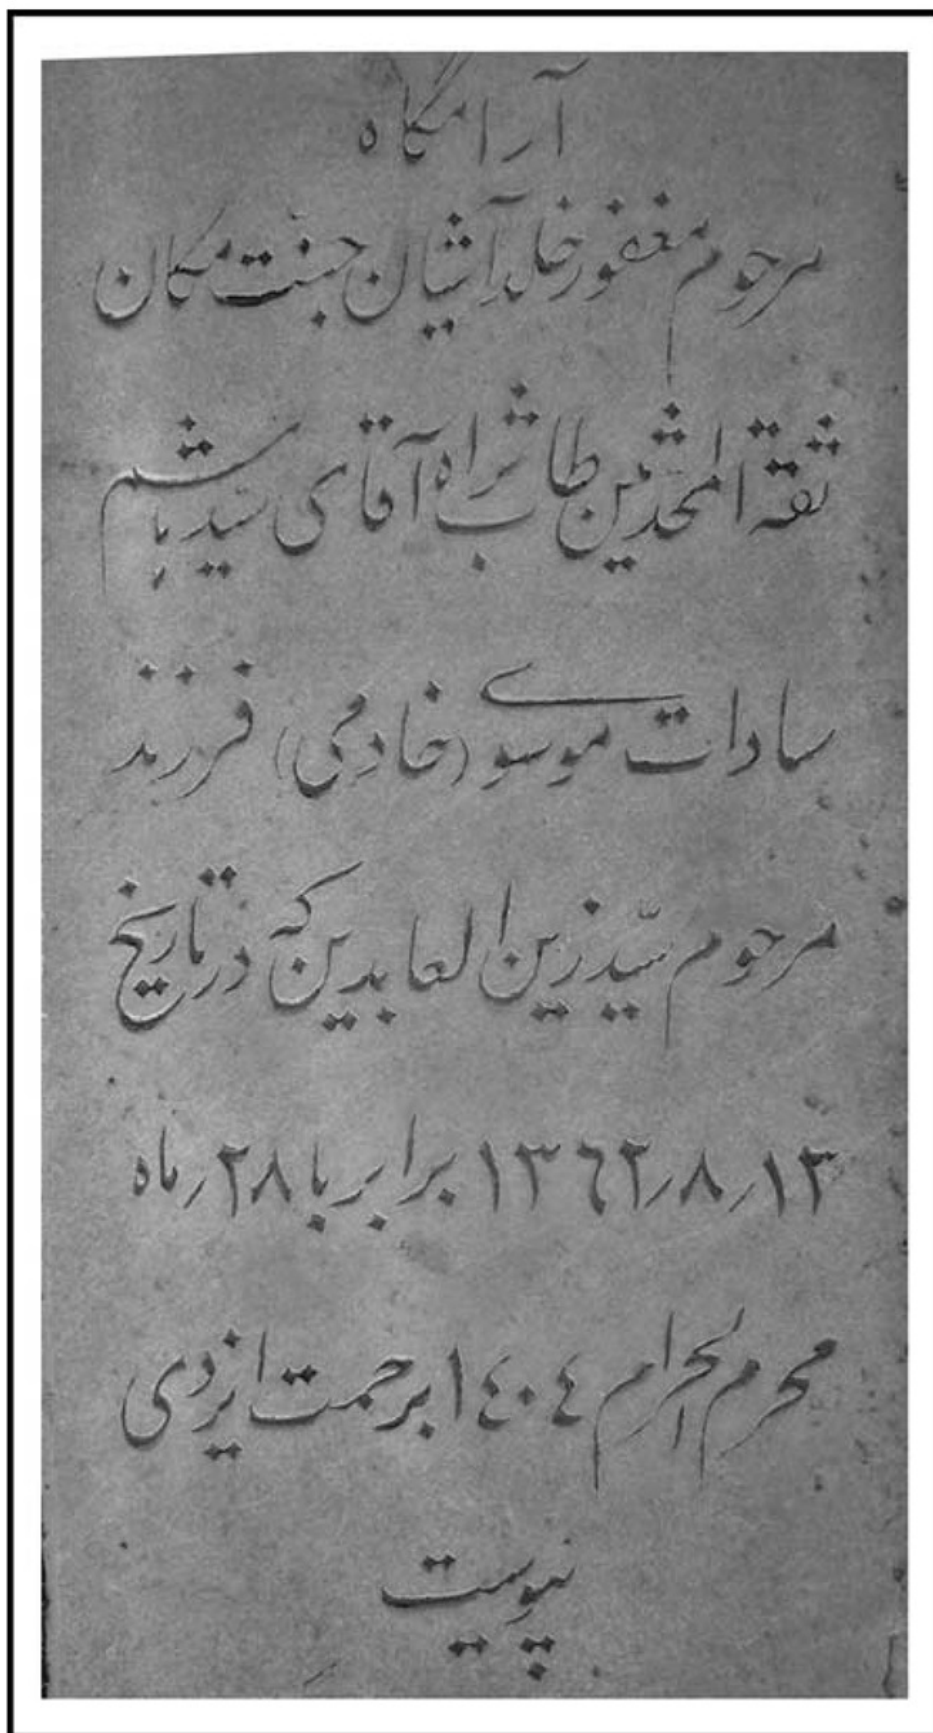 آرامگاه
مرحوم مغفور خلد آشیان جنت مکان
ثقة المحدثین طاب ثراه آقای سید هاشم
سادات موسوی (خادمی) فرزند
مرحوم سیّد زین العابدین که در تاریخ
۱۳٫۸٫۱۳٦۲ برابر با ۲۸٫ ماه
محرم الحرام ۱٤۰٤ برحمت ایزدی
پیوست